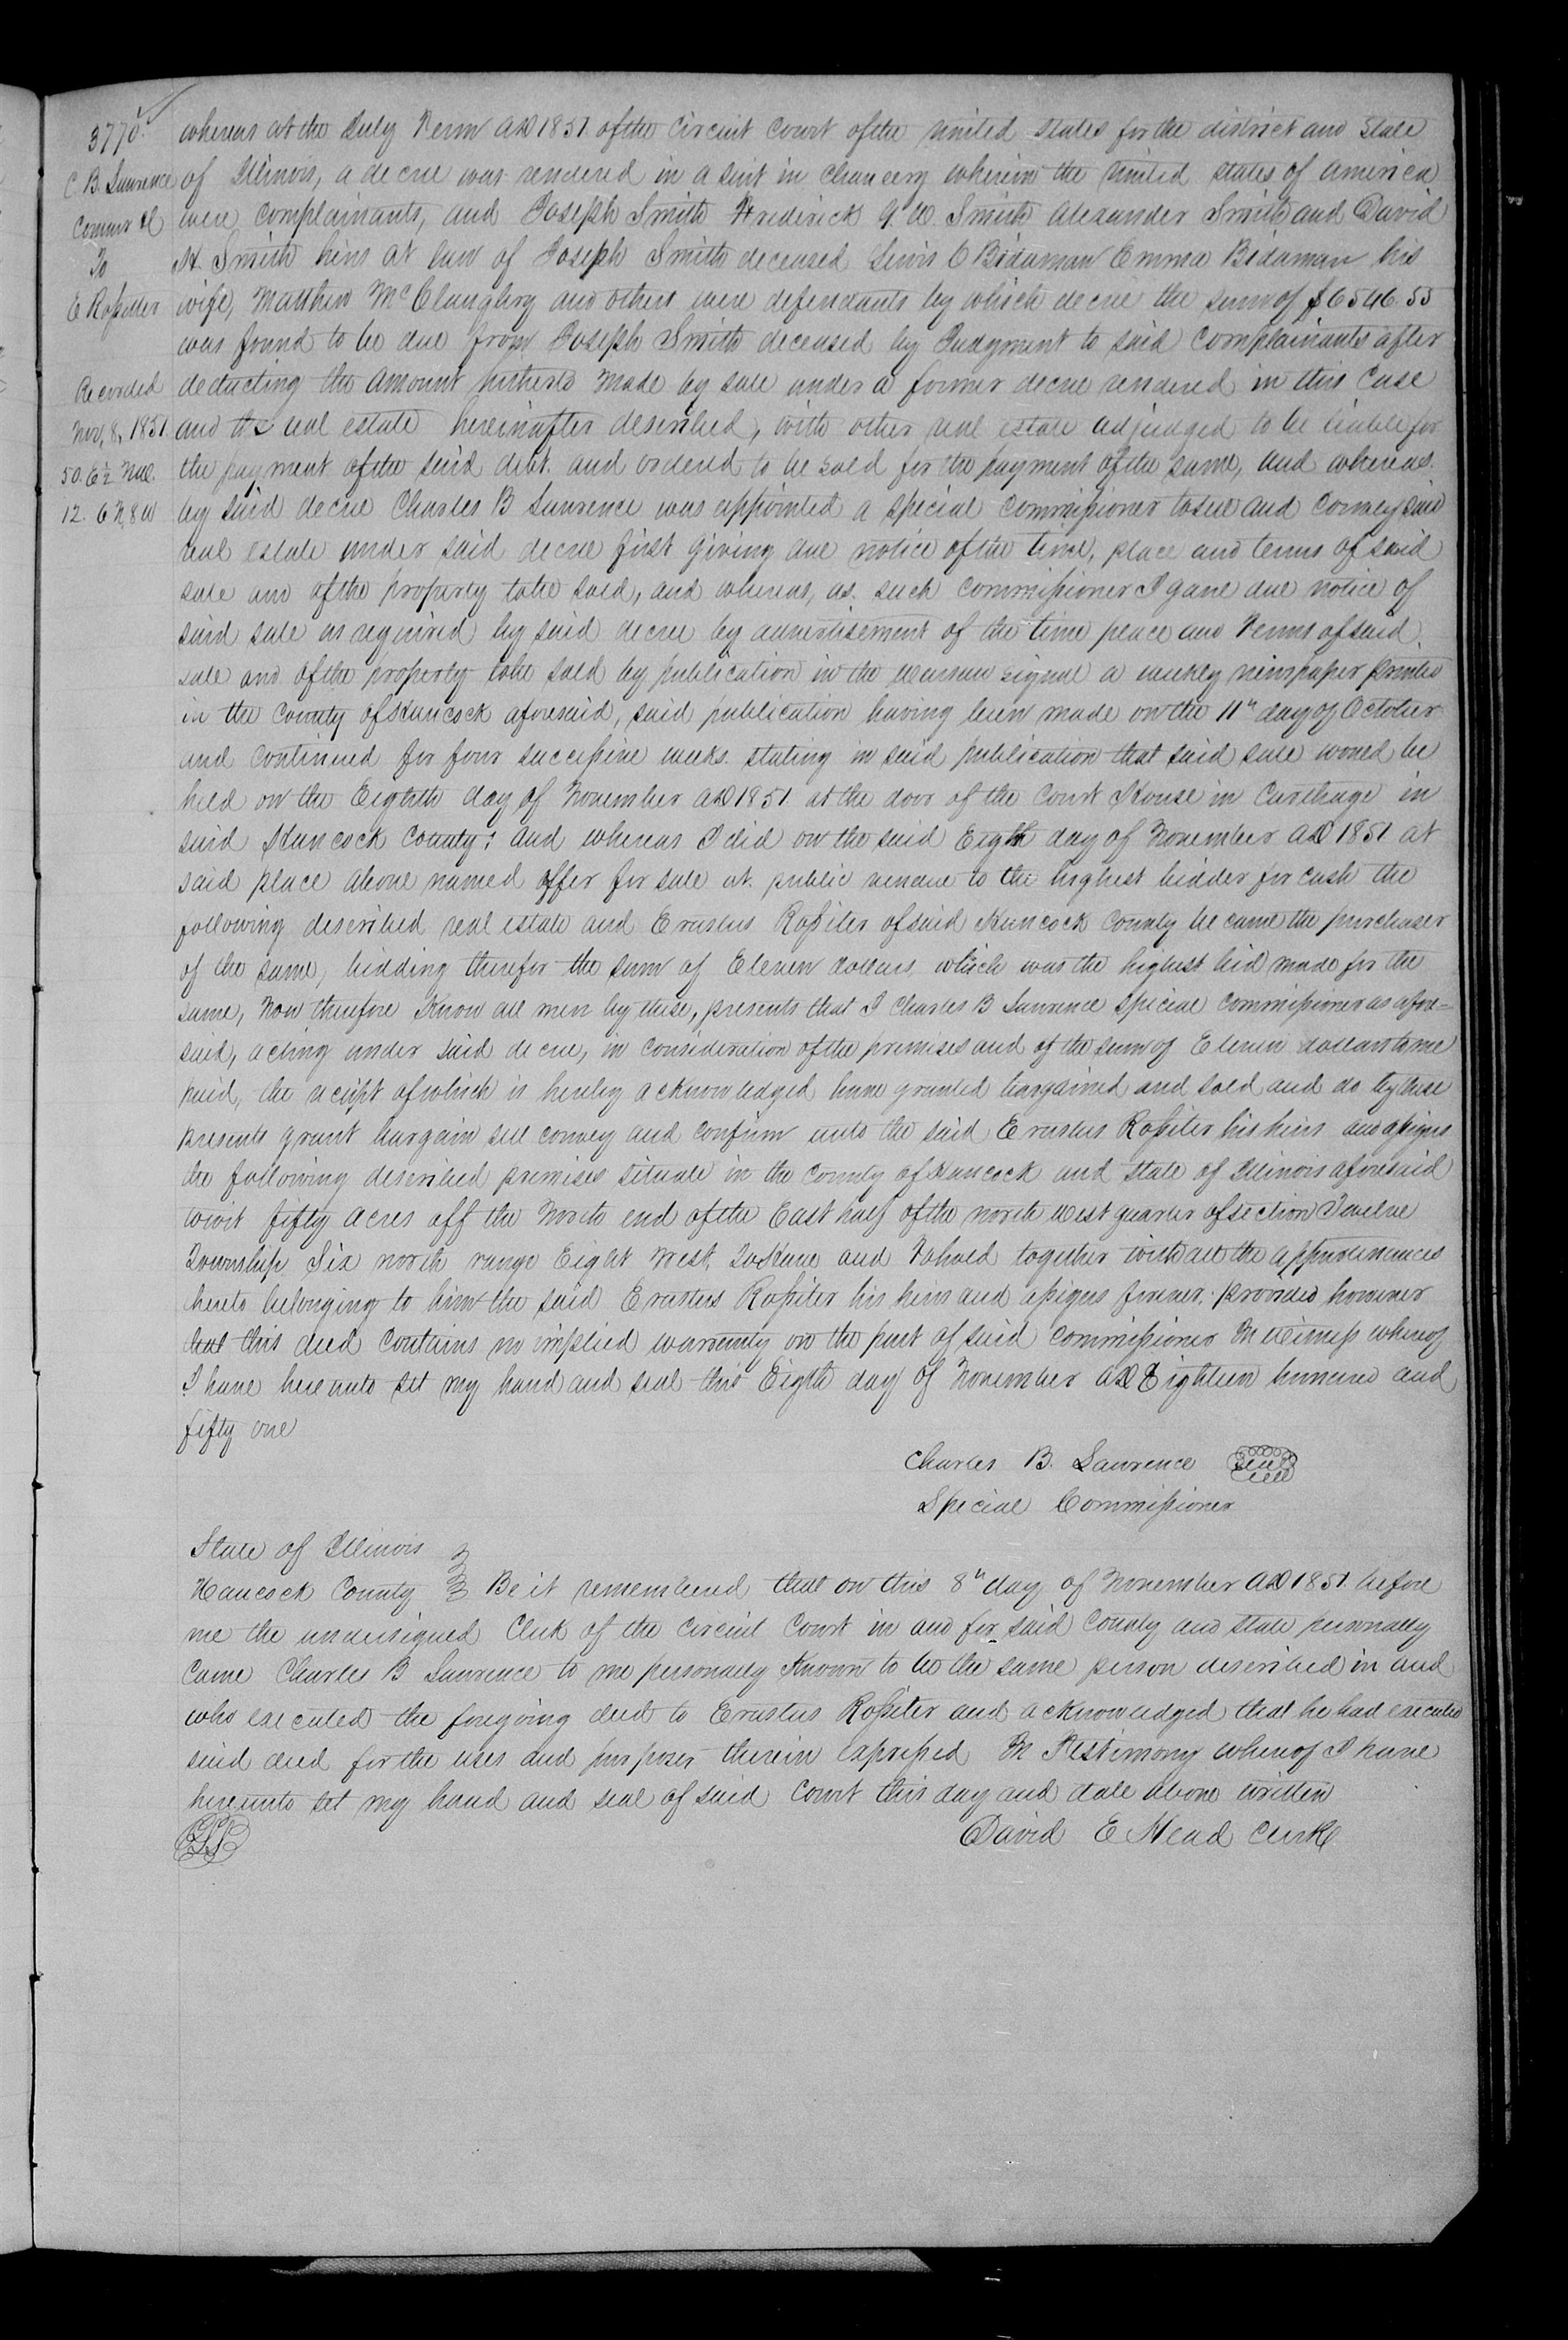 3770.
C. B. Lawrence
Commr &c
To
E Rossiter
Recorded
Nov, 8, 1851
50. E ½ NW.
12. 6 N, 8 W
whereas at the July Term AD 1851 of the Circuit Court of the United States for the district and State
of Illinois, a decree was rendered in a suit in chancery wherein the United States of America
were complainants, and Joseph Smith Frederick G. W. Smith Alexander Smith and David
H. Smith heirs at law of Joseph Smith deceased Lewis C Bidaman Emma Bidaman his
wife, Matthew McClaughry and others were defendants by which decree the sum of $6546.55
was found to be due from Joseph Smith deceased by Judgment to said complainants after
deducting the amount hitherto made by sale under a former decree rendered in this case
and the real estate hereinafter described, with other real estate adjudged to be liable for
the payment of the said debt. and ordered to be sold for the payment of the same, and whereas.
by said decree Charles B Lawrence was appointed a special commissioner to sell and convey said
real estate under said decree first giving due notice of the time, place and terms of said
sale and of the property to be sold, and whereas, as such commissioner I gave due notice of
said sale as required by said decree by advertisement of the time place and Terms of said
sale and of the property to be sold by publication in the Warsaw signal a weekly newspaper printed
in the County of Hancock aforesaid, said publication having been made on the 11th day of October
and continued for four successive weeks. stating in said publication that said sale would be
held on the Eighth day of November AD 1851 at the door of the Court House in Carthage in
said Hancock County; and whereas I did on the said Eigth day of November AD 1851 at
said place above named offer for sale at public vendue to the highest bidder for cash the
following described real estate and Erastus Rossiter of said Hancock County became the purchaser
of the same, bidding therefor the sum of Eleven dollars which was the highest bid made for the
same, Now therefore Know all men by these, presents that I Charles B Lawrence special commissioner as afore=
said, acting under said decree, in consideration of the premises and of the sum of Eleven dollars to me
paid, the receipt of which is hereby acknowledged have granted bargained and sold and do by these
presents grant bargain sell convey and confirm unto the said Erastus Rossiter his heirs and assigns
the following described premises situate in the County of Hancock and State of Illinois aforesaid
towit fifty acres off the North end of the East half of the north west quarter of section Twelve
Township Six north range Eight West, To Have and To hold together with all the appurtenances
hereto belonging to him the said Erastus Rossiter his heirs and assigns forever. provided however
that this deed contains no implied warranty on the part of said commissioner In witness whereof
I have hereunto set my hand and seal this Eigth day of November AD Eighteen hundred and
fifty one
Charles B. Lawrence Seal
Special Commissioner
State of Illinois
Hancock County Be it remembered that on this 8th day of November AD 1851. before
me the undersigned Clerk of the Circuit Court in and for said County and State personally
came Charles B Lawrence to me personally Known to be the same person described in and
who executed the foregoing deed to Erastus Rossiter and acknowledged that he had executed
said deed for the uses and purposes therein expressed In Testimony whereof I have
hereunto set my hand and seal of said Court this day and date above written
LS David E Head Clerk